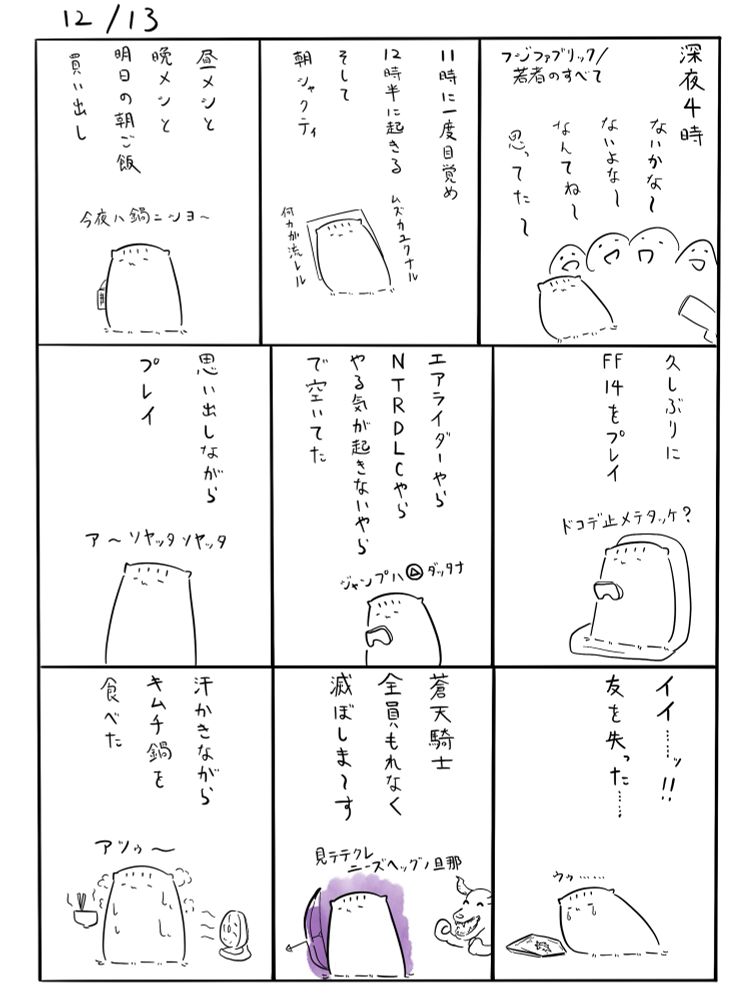 12/13
深夜4時
フジファブリック/
若者のすべて
ないかな〜
ないよな〜
なんてね〜
思ってた〜
11時に一度目覚め
12時半に起きる
そして
朝シャクティ
ムズカユクナル
何カガ流レル
昼メシと
晩メシと
明日の朝ご飯
買い出し
今夜ハ鍋ニシヨー
久しぶりに
FF
14をプレイ
ドコデ止メテタッケ?
エアライダーやら
NTRDLCやら
やる気が起きないやら
で空いてた
ジャンプハ△ダッタナ
思い出しながら
プレイ
ア〜ソヤッタソヤッタ
イイ……ッ!!
友を失った……
ウゥ……
蒼天騎士
全員もれなく
滅ぼしま〜す
見テテクレ
ニーズヘッグノ旦那
汗かきながら
キムチ鍋を
食べた
アツゥ〜